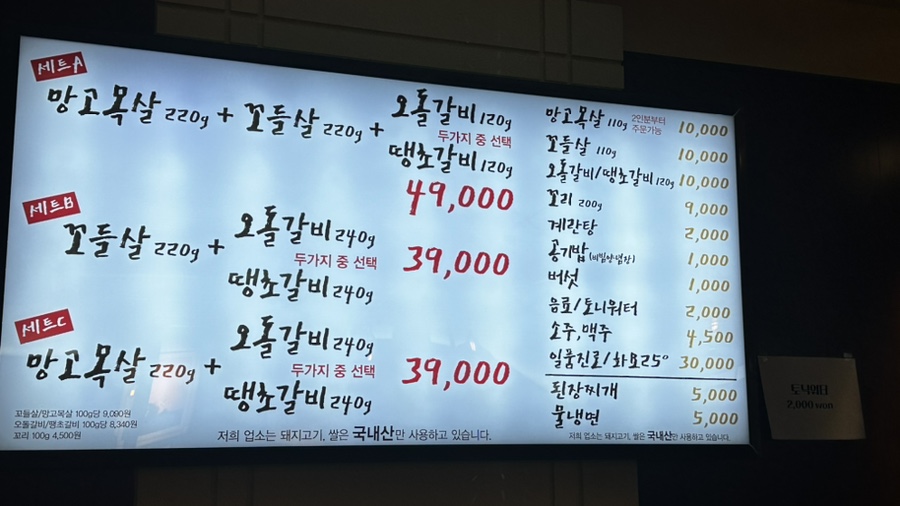 세트A
망고목살 220g + 꼬들살 220g + 오돌갈비 120g
두가지 중 선택
땡초갈비 120g
49,000
세트B
꼬들살 220g + 오돌갈비 240g
두가지 중 선택
땡초갈비 240g
39,000
세트C
망고목살 220g + 오돌갈비 240g
두가지 중 선택
땡초갈비 240g
39,000
꼬들살/망고목살 100g당 9,090원
오돌갈비/땡초갈비 100g당 8,340원
꼬리 100g 4,500원
저희 업소는 돼지고기, 쌀은 국내산만 사용하고 있습니다.
망고목살 110g 2인분부터 주문가능 10,000
꼬들살 110g 10,000
오돌갈비/땡초갈비 120g 10,000
꼬리 200g 9,000
계란탕 2,000
공기밥 1,000
버섯 1,000
음료/토니워터 2,000
소주, 맥주 4,500
일품진로/화요25° 30,000
된장찌개 5,000
물냉면 5,000
저희 업소는 돼지고기, 쌀은 국내산만 사용하고 있습니다.
토닉워터
2,000 won